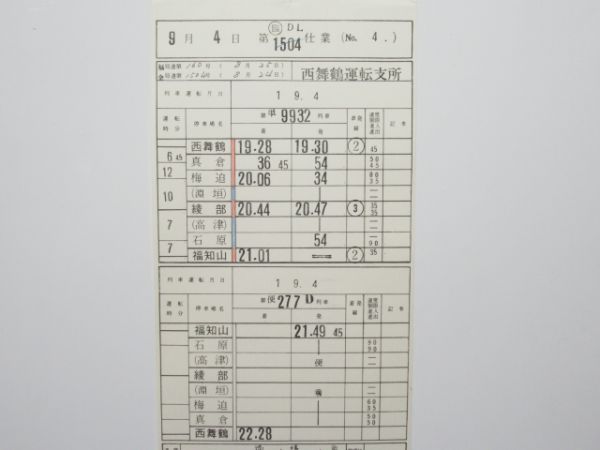 DL
9月 4日 第1504仕業 (No. 4.)
西舞鶴運転支所
列車運転月日 19.4
運転時分 停車場名 単9932列車 着発線 記事
着 発
西舞鶴 19.28 19.30 ② 45
6 45 真倉 36 45 54 50 45
12 梅迫 20.06 34 80 35
10 (淵垣)
綾部 20.44 20.47 ③ 35 35
7 (高津)
石原 54 90
7 福知山 21.01 ② 35
列車運転月日 19.4
運転時分 停車場名 便277D列車 着発線 記事
着 発
福知山 21.49 45
石原 90 90
(高津) 便
綾部
(淵垣) 乗
梅迫 60 35
真倉 50 50
西舞鶴 22.28